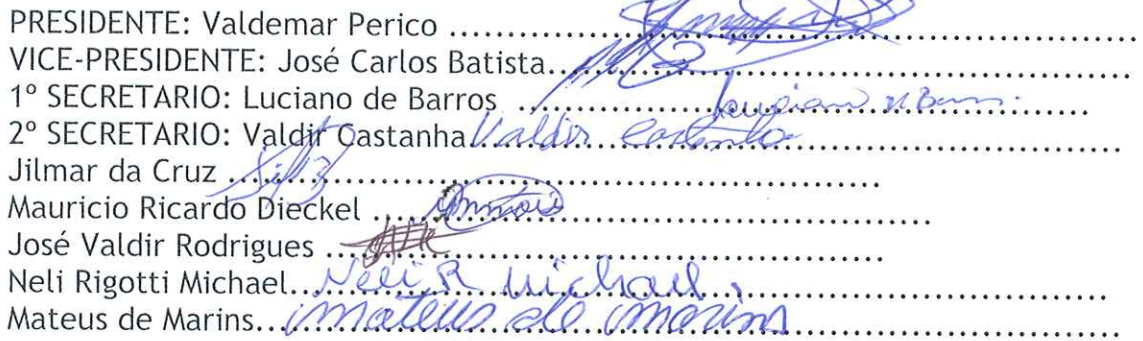 PRESIDENTE: Valdemar Perico ........................................................
VICE-PRESIDENTE: José Carlos Batista........................................................
1º SECRETARIO: Luciano de Barros ........................................................
2º SECRETARIO: Valdir Castanha Valdir Castanha
Jilmar da Cruz ........................................................
Mauricio Ricardo Dieckel ........................................................
José Valdir Rodrigues ........................................................
Neli Rigotti Michael... Neli R Michael
Mateus de Marins... Mateus de Marins